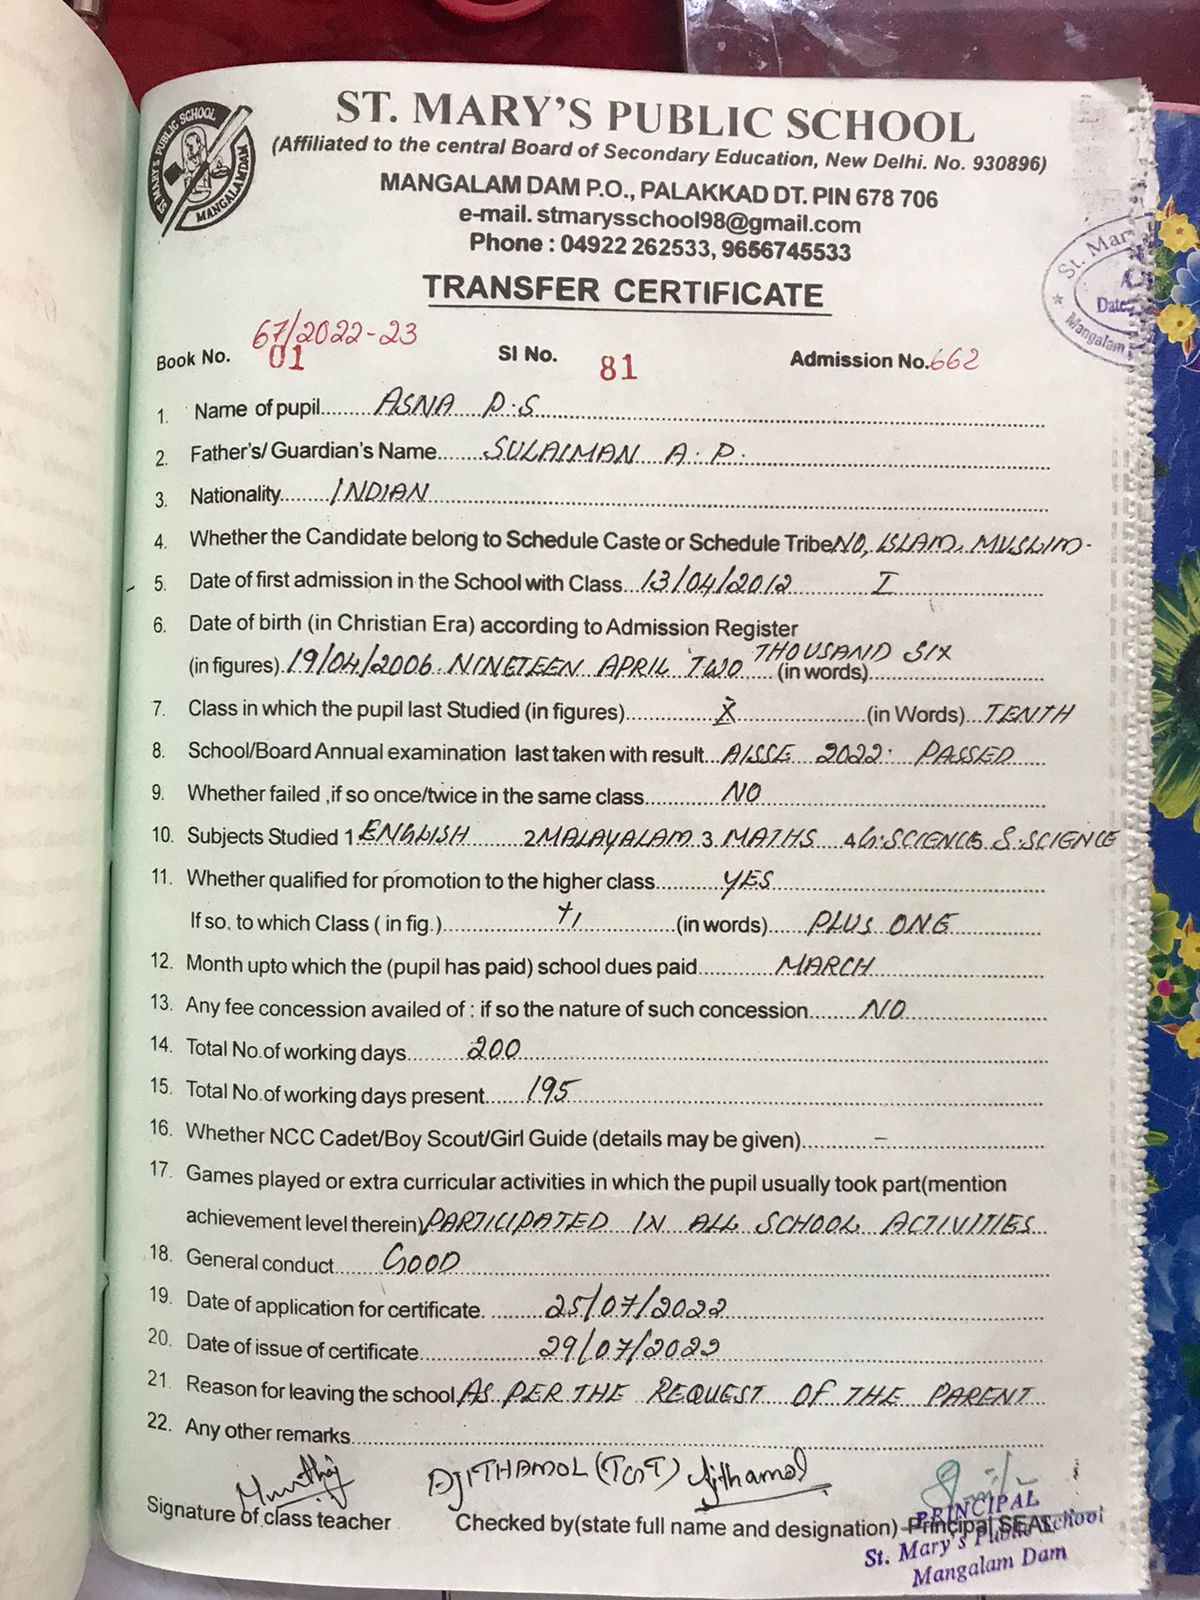 ST. MARY'S PUBLIC SCHOOL
(Affiliated to the central Board of Secondary Education, New Delhi. No. 930896)
MANGALAM DAM P.O., PALAKKAD DT. PIN 678 706
e-mail. stmarysschool98@gmail.com
Phone : 04922 262533, 9656745533
ST.MARY'S PUBLIC SCHOOL
MANGALAMDAM
TRANSFER CERTIFICATE
St. Mar
Date:
Mangalam
67/2022-23
Book No. 01 SI No. 81 Admission No. 662
1. Name of pupil ASNA P.S
2. Father's/ Guardian's Name SULAIMAN A.P.
3. Nationality INDIAN
4. Whether the Candidate belong to Schedule Caste or Schedule Tribe NO, ISLAM, MUSLIM.
5. Date of first admission in the School with Class 13/04/2012 I
6. Date of birth (in Christian Era) according to Admission Register
(in figures) 19/04/2006. NINETEEN APRIL TWO THOUSAND SIX (in words)
7. Class in which the pupil last Studied (in figures) X (in Words) TENTH
8. School/Board Annual examination last taken with result AISSE 2022. PASSED
9. Whether failed ,if so once/twice in the same class NO
10. Subjects Studied 1 ENGLISH 2 MALAYALAM 3. MATHS 4 G.SCIENCE 5. S.SCIENCE
11. Whether qualified for promotion to the higher class YES
If so, to which Class ( in fig.) +1 (in words) PLUS ONE
12. Month upto which the (pupil has paid) school dues paid MARCH
13. Any fee concession availed of : if so the nature of such concession NO
14. Total No.of working days 200
15. Total No.of working days present 195
16. Whether NCC Cadet/Boy Scout/Girl Guide (details may be given) –
17. Games played or extra curricular activities in which the pupil usually took part(mention
achievement level therein) PARTICIPATED IN ALL SCHOOL ACTIVITIES
18. General conduct GOOD
19. Date of application for certificate. 25/07/2022
20. Date of issue of certificate 29/07/2022
21. Reason for leaving the school AS PER THE REQUEST OF THE PARENT
22. Any other remarks
AJITHAMOL (TGT) Ajithamol
Signature of class teacher Checked by(state full name and designation) Principal SEAL
PRINCIPAL
St. Mary's Public School
Mangalam Dam